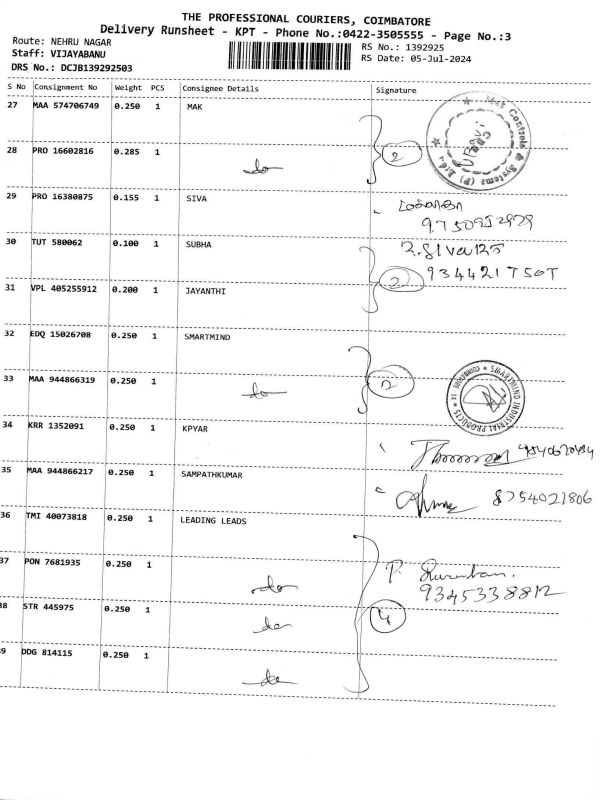 THE PROFESSIONAL COURIERS, COIMBATORE
Delivery Runsheet - KPT - Phone No.:0422-3505555 - Page No.:3
Route: NEHRU NAGAR
RS No.: 1392925
Staff: VIJAYABANU
RS Date: 05-Jul-2024
DRS No.: DCJB139292503
S No Consignment No Weight PCS Consignee Details Signature
27 MAA 574706749 0.250 1 MAK
Mak Controls & Systems (P) Ltd.
28 PRO 16602816 0.285 1 do 2
29 PRO 16380875 0.155 1 SIVA
9750952929
30 TUT 580062 0.100 1 SUBHA
2
31 VPL 405255912 0.200 1 JAYANTHI
32 EDQ 15026708 0.250 1 SMARTMIND
SMARTMIND INDUSTRIAL PRODUCTS
33 MAA 944866319 0.250 1 do 2
34 KRR 1352091 0.250 1 KPYAR
35 MAA 944866217 0.250 1 SAMPATHKUMAR
8754021806
36 TMI 40073818 0.250 1 LEADING LEADS
37 PON 7681935 0.250 1 do
9345338812
38 STR 445975 0.250 1 do 4
39 DDG 814115 0.250 1 do